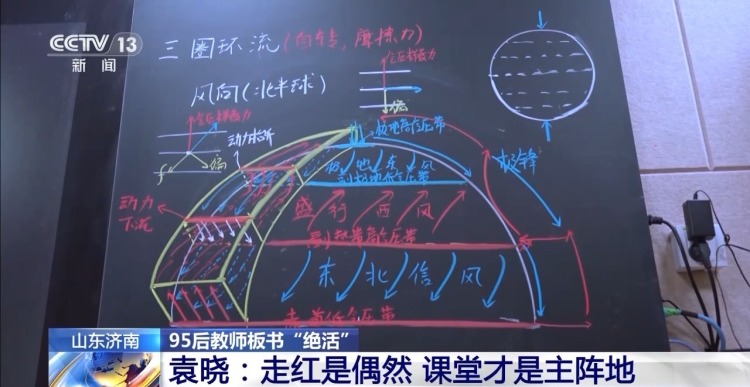 CCTV 13
新闻
三圈环流(自转,摩擦力)
风向(北半球)
气压梯度力
气压梯度力
f
偏
偏
动力抬升
极地高气压带
极地东风
副极地低气压带
极锋
动力
下沉
盛行西风
副热带高气压带
东北信风
赤道低气压带
山东济南
95后教师板书“绝活”
袁晓：走红是偶然 课堂才是主阵地